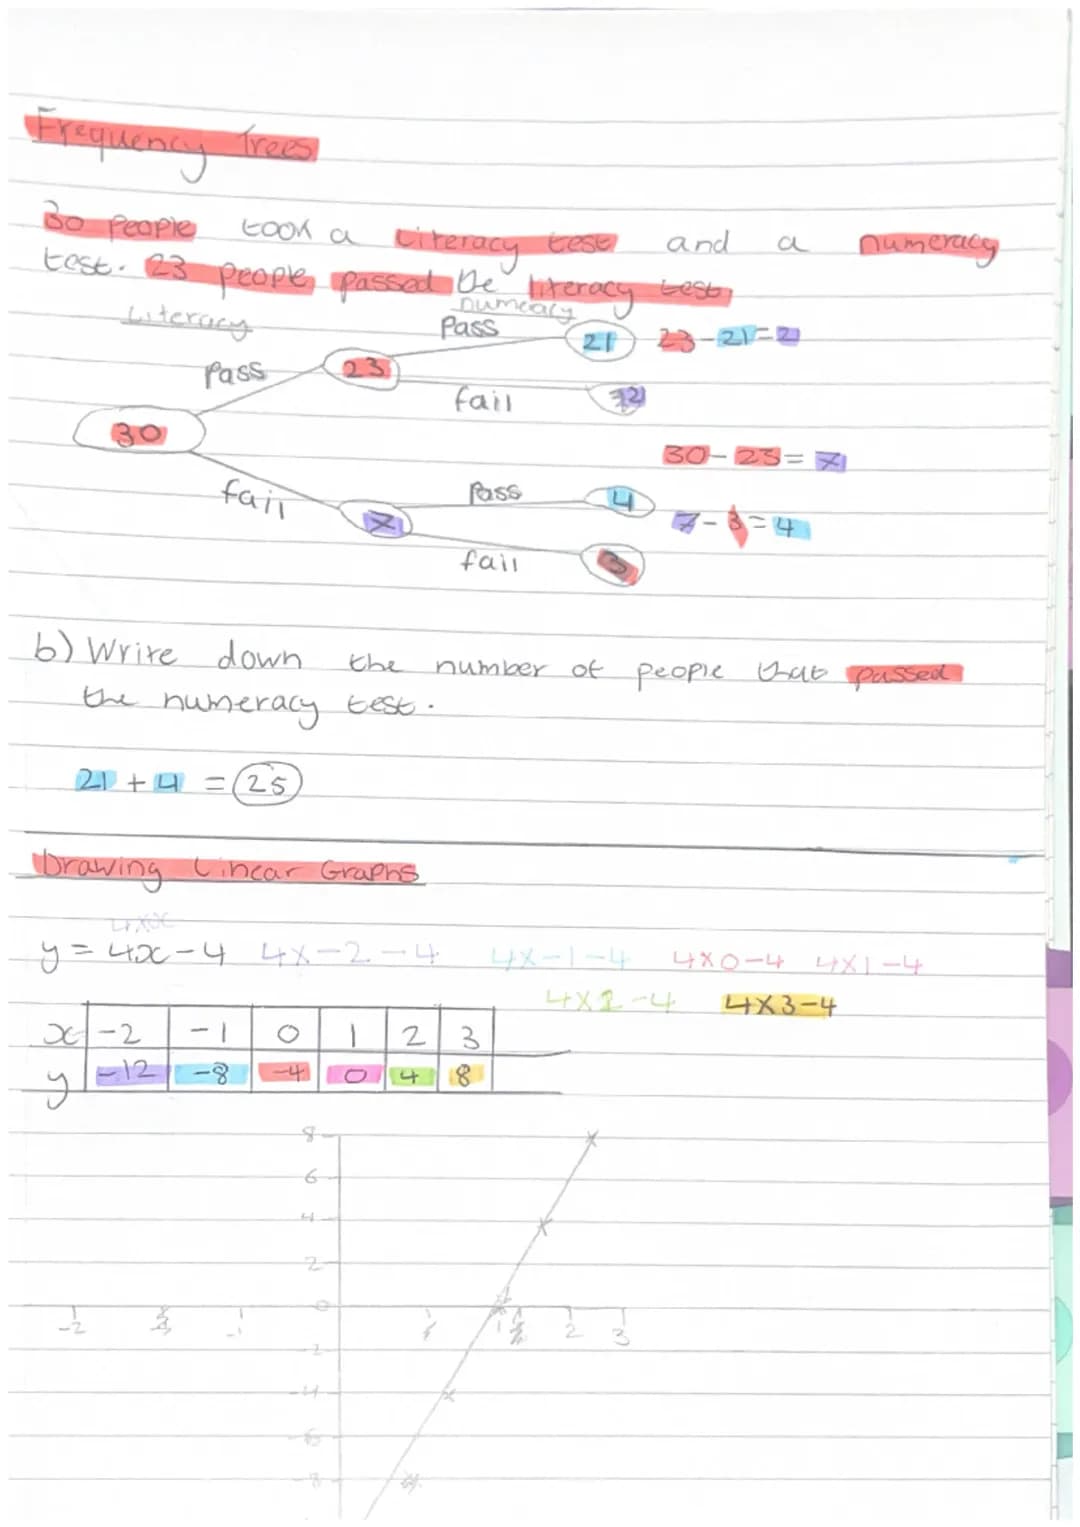 Frequency Trees
30 people took a literacy test and a numeracy
test. 23 people passed the literacy test.
Literacy
numeracy
Pass
Pass
fail
30
23
21
23-21=2
2
30-23=7
fail
7
Pass
fail
4
3
7-3=4
b) Write down the number of people that passed
the numeracy test.
21 + 4 = 25
Drawing Linear Graphs
y = 4x-4 4x-2-4 4x-1-4 4x0-4 4x1-4
4x2-4 4x3-4
x -2 -1 0 1 2 3
y -12 -8 -4 0 4 8
8
6
4
2
0
-2 -1 1 2 3
-2
-4
-6
-8